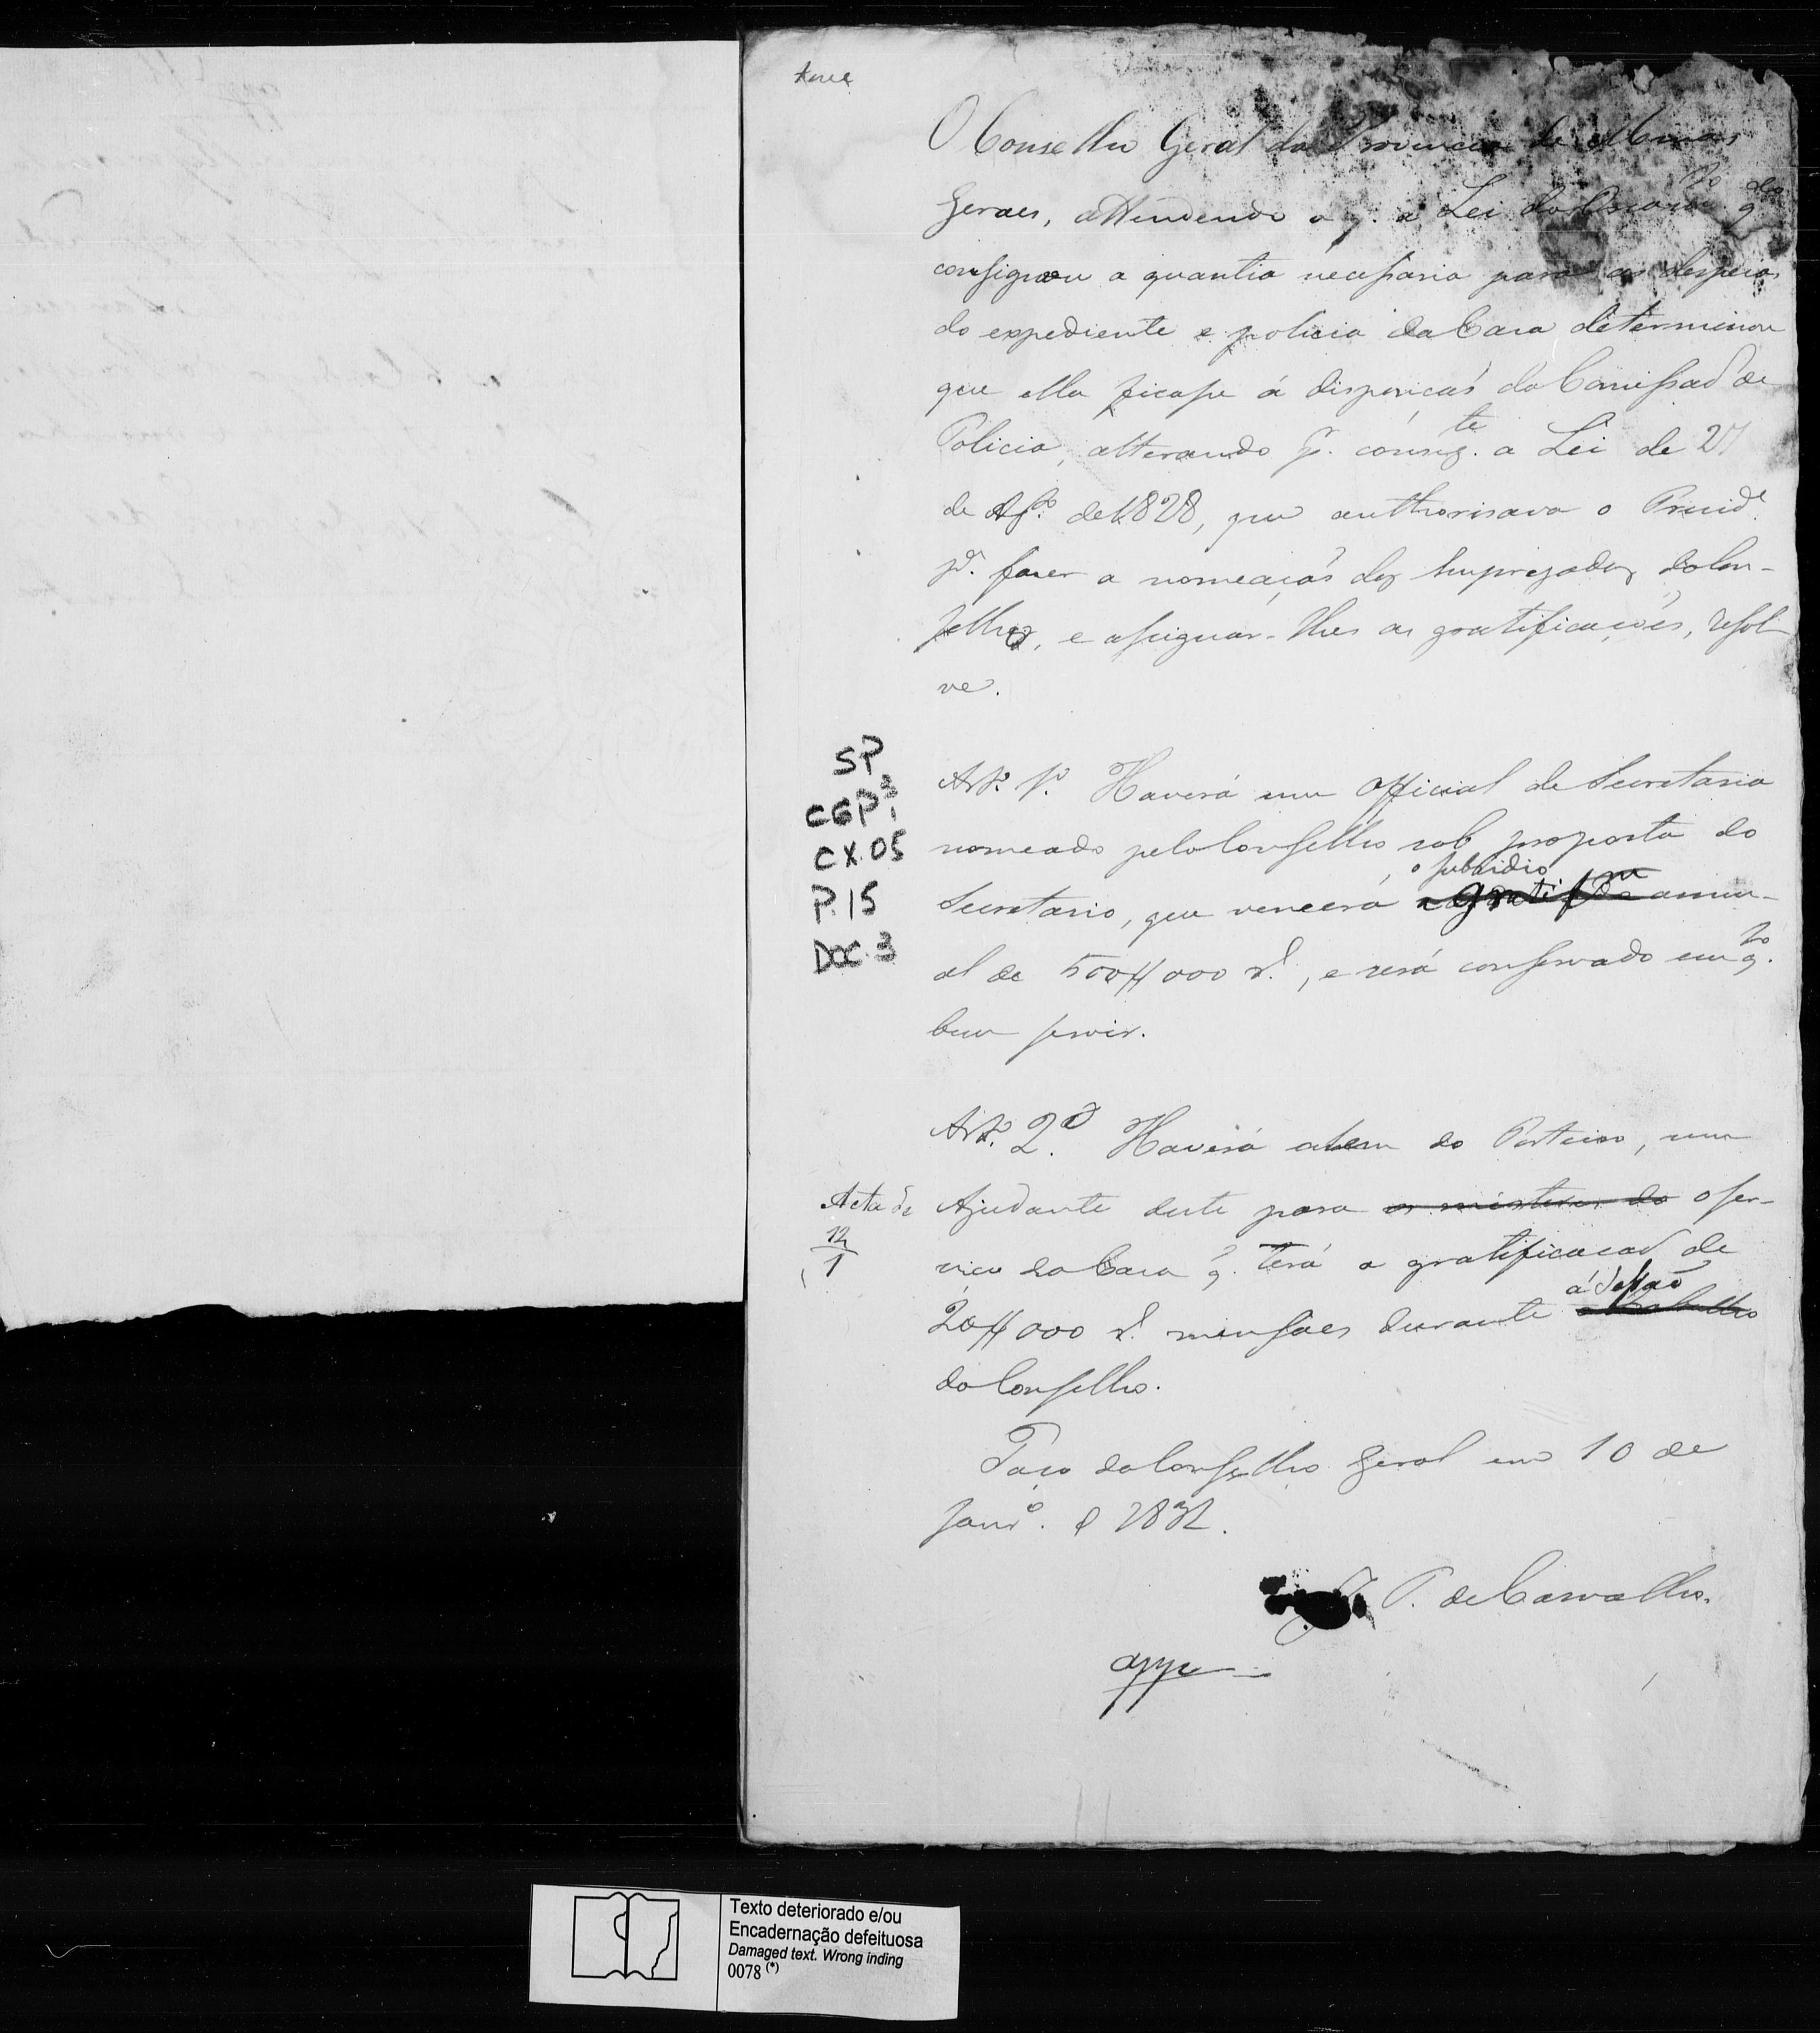 O Conselho Geral da Provincia de Minas
Geraes, attendendo a q. a Lei do Orçam.to q.do
consignou a quantia necessaria para as despezas
do expediente e policia da Caza determinou
que ella ficasse á disposicaõ da Comissaõ de
Policia, alterando p. conseg.te a Lei de 27
de Ag.to de 1828, que authorisava o Prezid.e
p.a fazer a nomeaçaõ dos Empregados do Con-
selho, e assignar-lhes as gratificaçoẽs, resol-
ve.
SP
CGP¹
CX.05
P.15
DOC.3
Art.o 1.o Haverá um Official de Secretaria
nomeado pelo Conselho sob proposta do
, o subsidio
Secretario, que vencerá annu-
al de 500$000 r.s, e será conservado em q.to
bem servir.
Art.o 2.o Haverá alem do Porteiro, um
Acta de
12
1
Ajudante deste para os misteres do o ser-
vico da Caza q. terá a gratificacaõ de
á Sessaõ
20$000 r.s mensaes durante o trabalho
do Conselho.
Paço do Conselho Geral em 10 de
Janr.o d 1832.
P. de Carvalho.
Texto deteriorado e/ou
Encadernação defeituosa
Damaged text. Wrong inding
0078 (*)